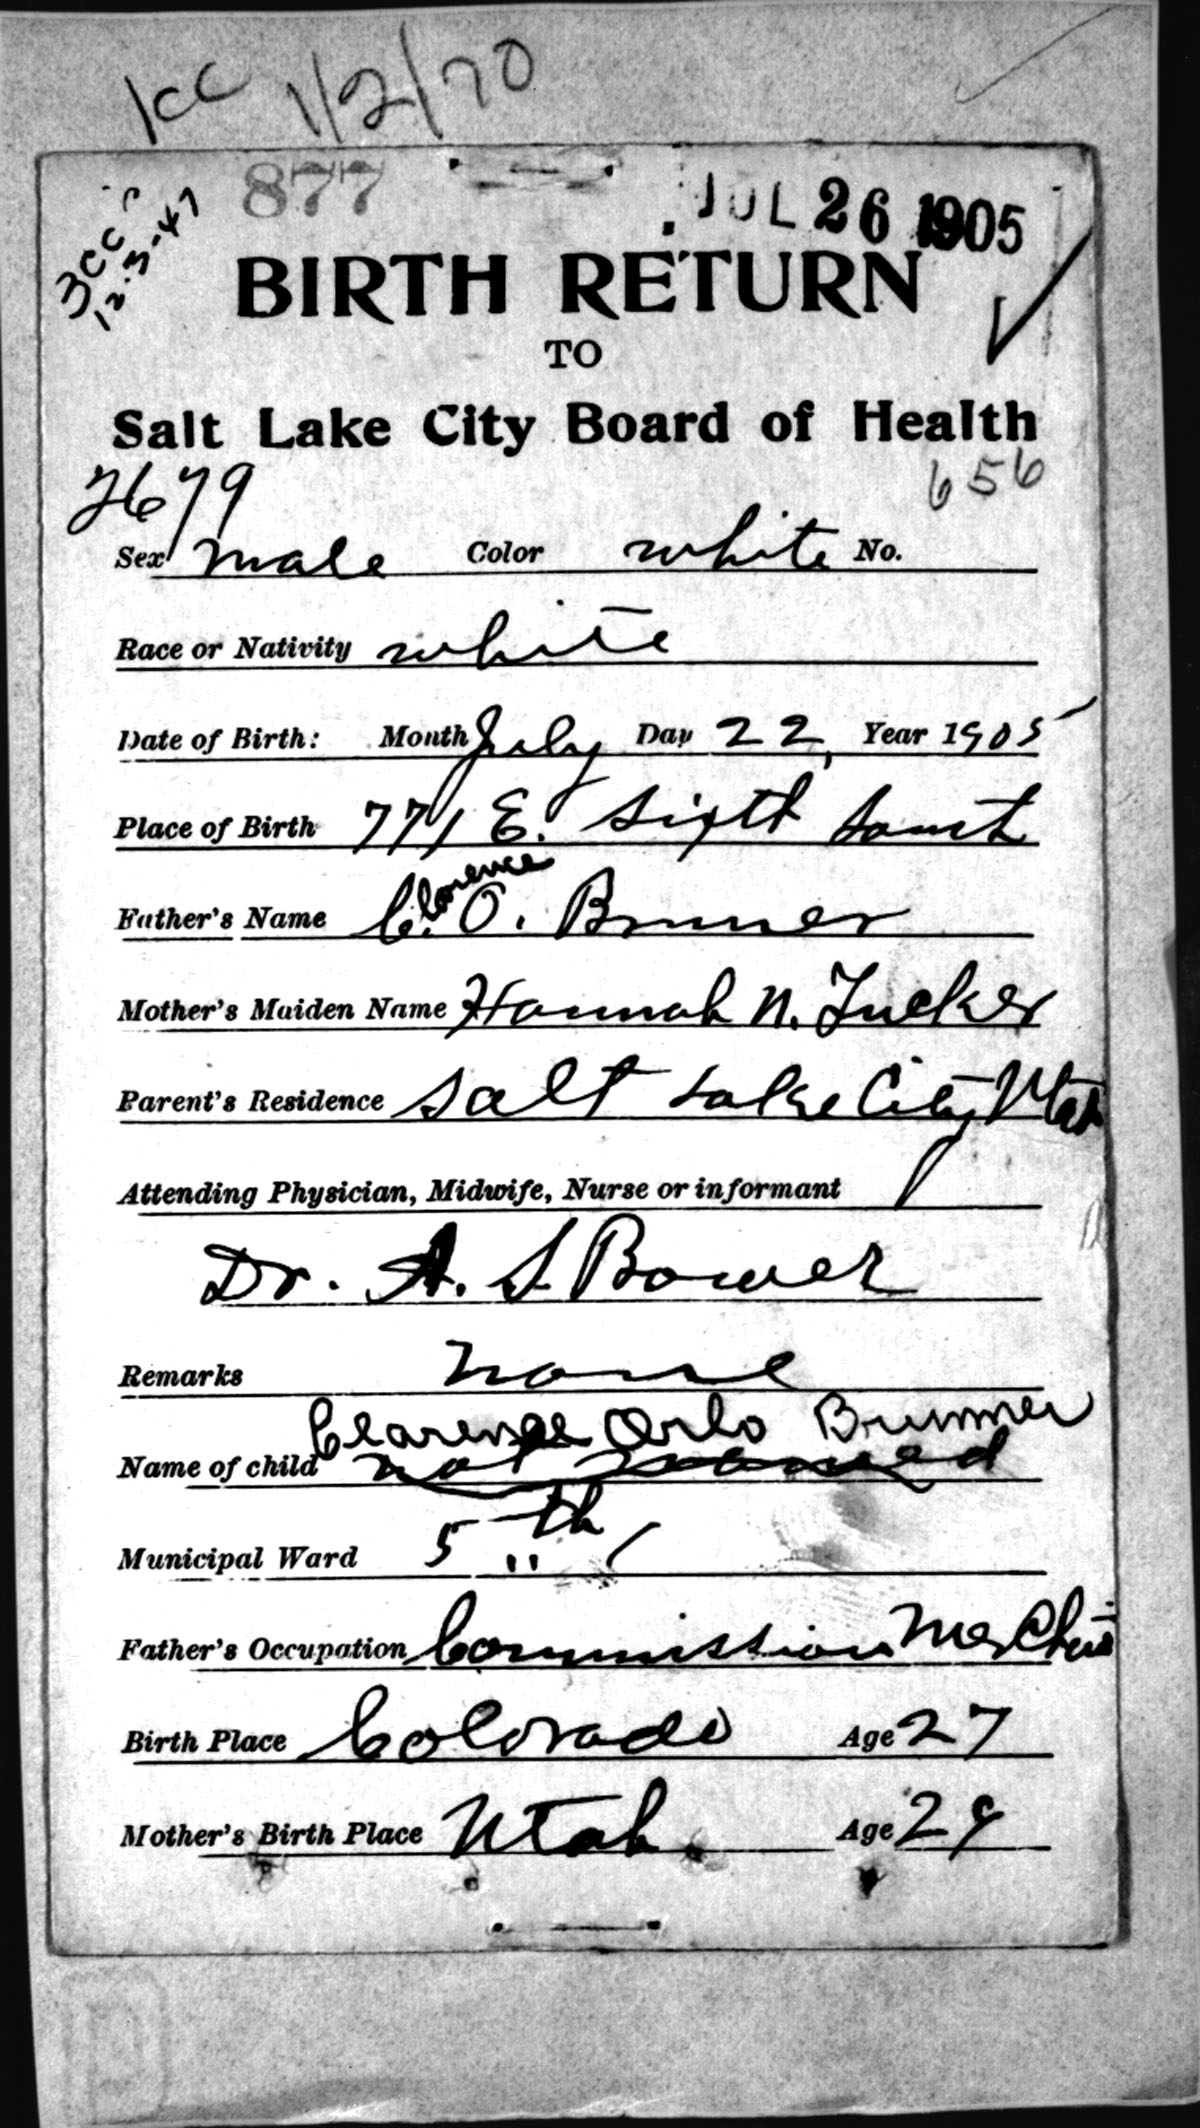 1CC 1/2/70
877
JUL 26 1905
3CC
12-3-47
BIRTH RETURN
TO
Salt Lake City Board of Health
2679
656
Sex male Color white No.
Race or Nativity white
Date of Birth: Month July Day 22, Year 1905
Place of Birth 771 E. Sixth South
Clarence
Father's Name C. O. Brunner
Mother's Maiden Name Hannah N. Tucker
Parent's Residence Salt Lake City Utah
Attending Physician, Midwife, Nurse or informant
Dr. A. S Bower
Remarks none
Clarence Orlo Brunner
Name of child not named
Municipal Ward 5th
Father's Occupation Commission Merchant
Birth Place Colorado Age 27
Mother's Birth Place Utah Age 29